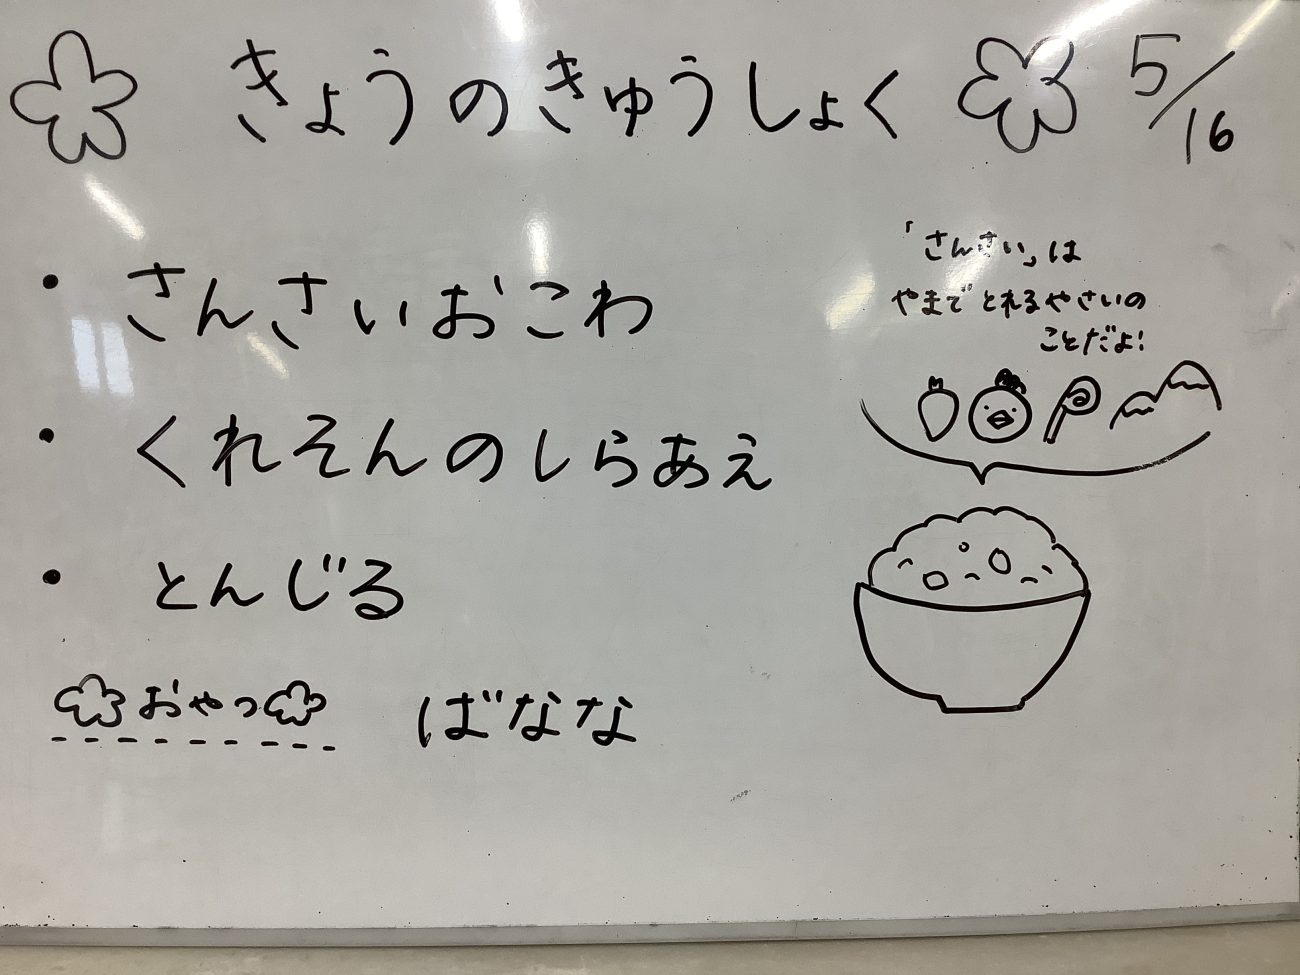 きょうのきゅうしょく 5/16
・さんさいおこわ
・くれそんのしらあえ
・とんじる
おやつ ばなな
「さんさい」は
やまでとれるやさいの
ことだよ!